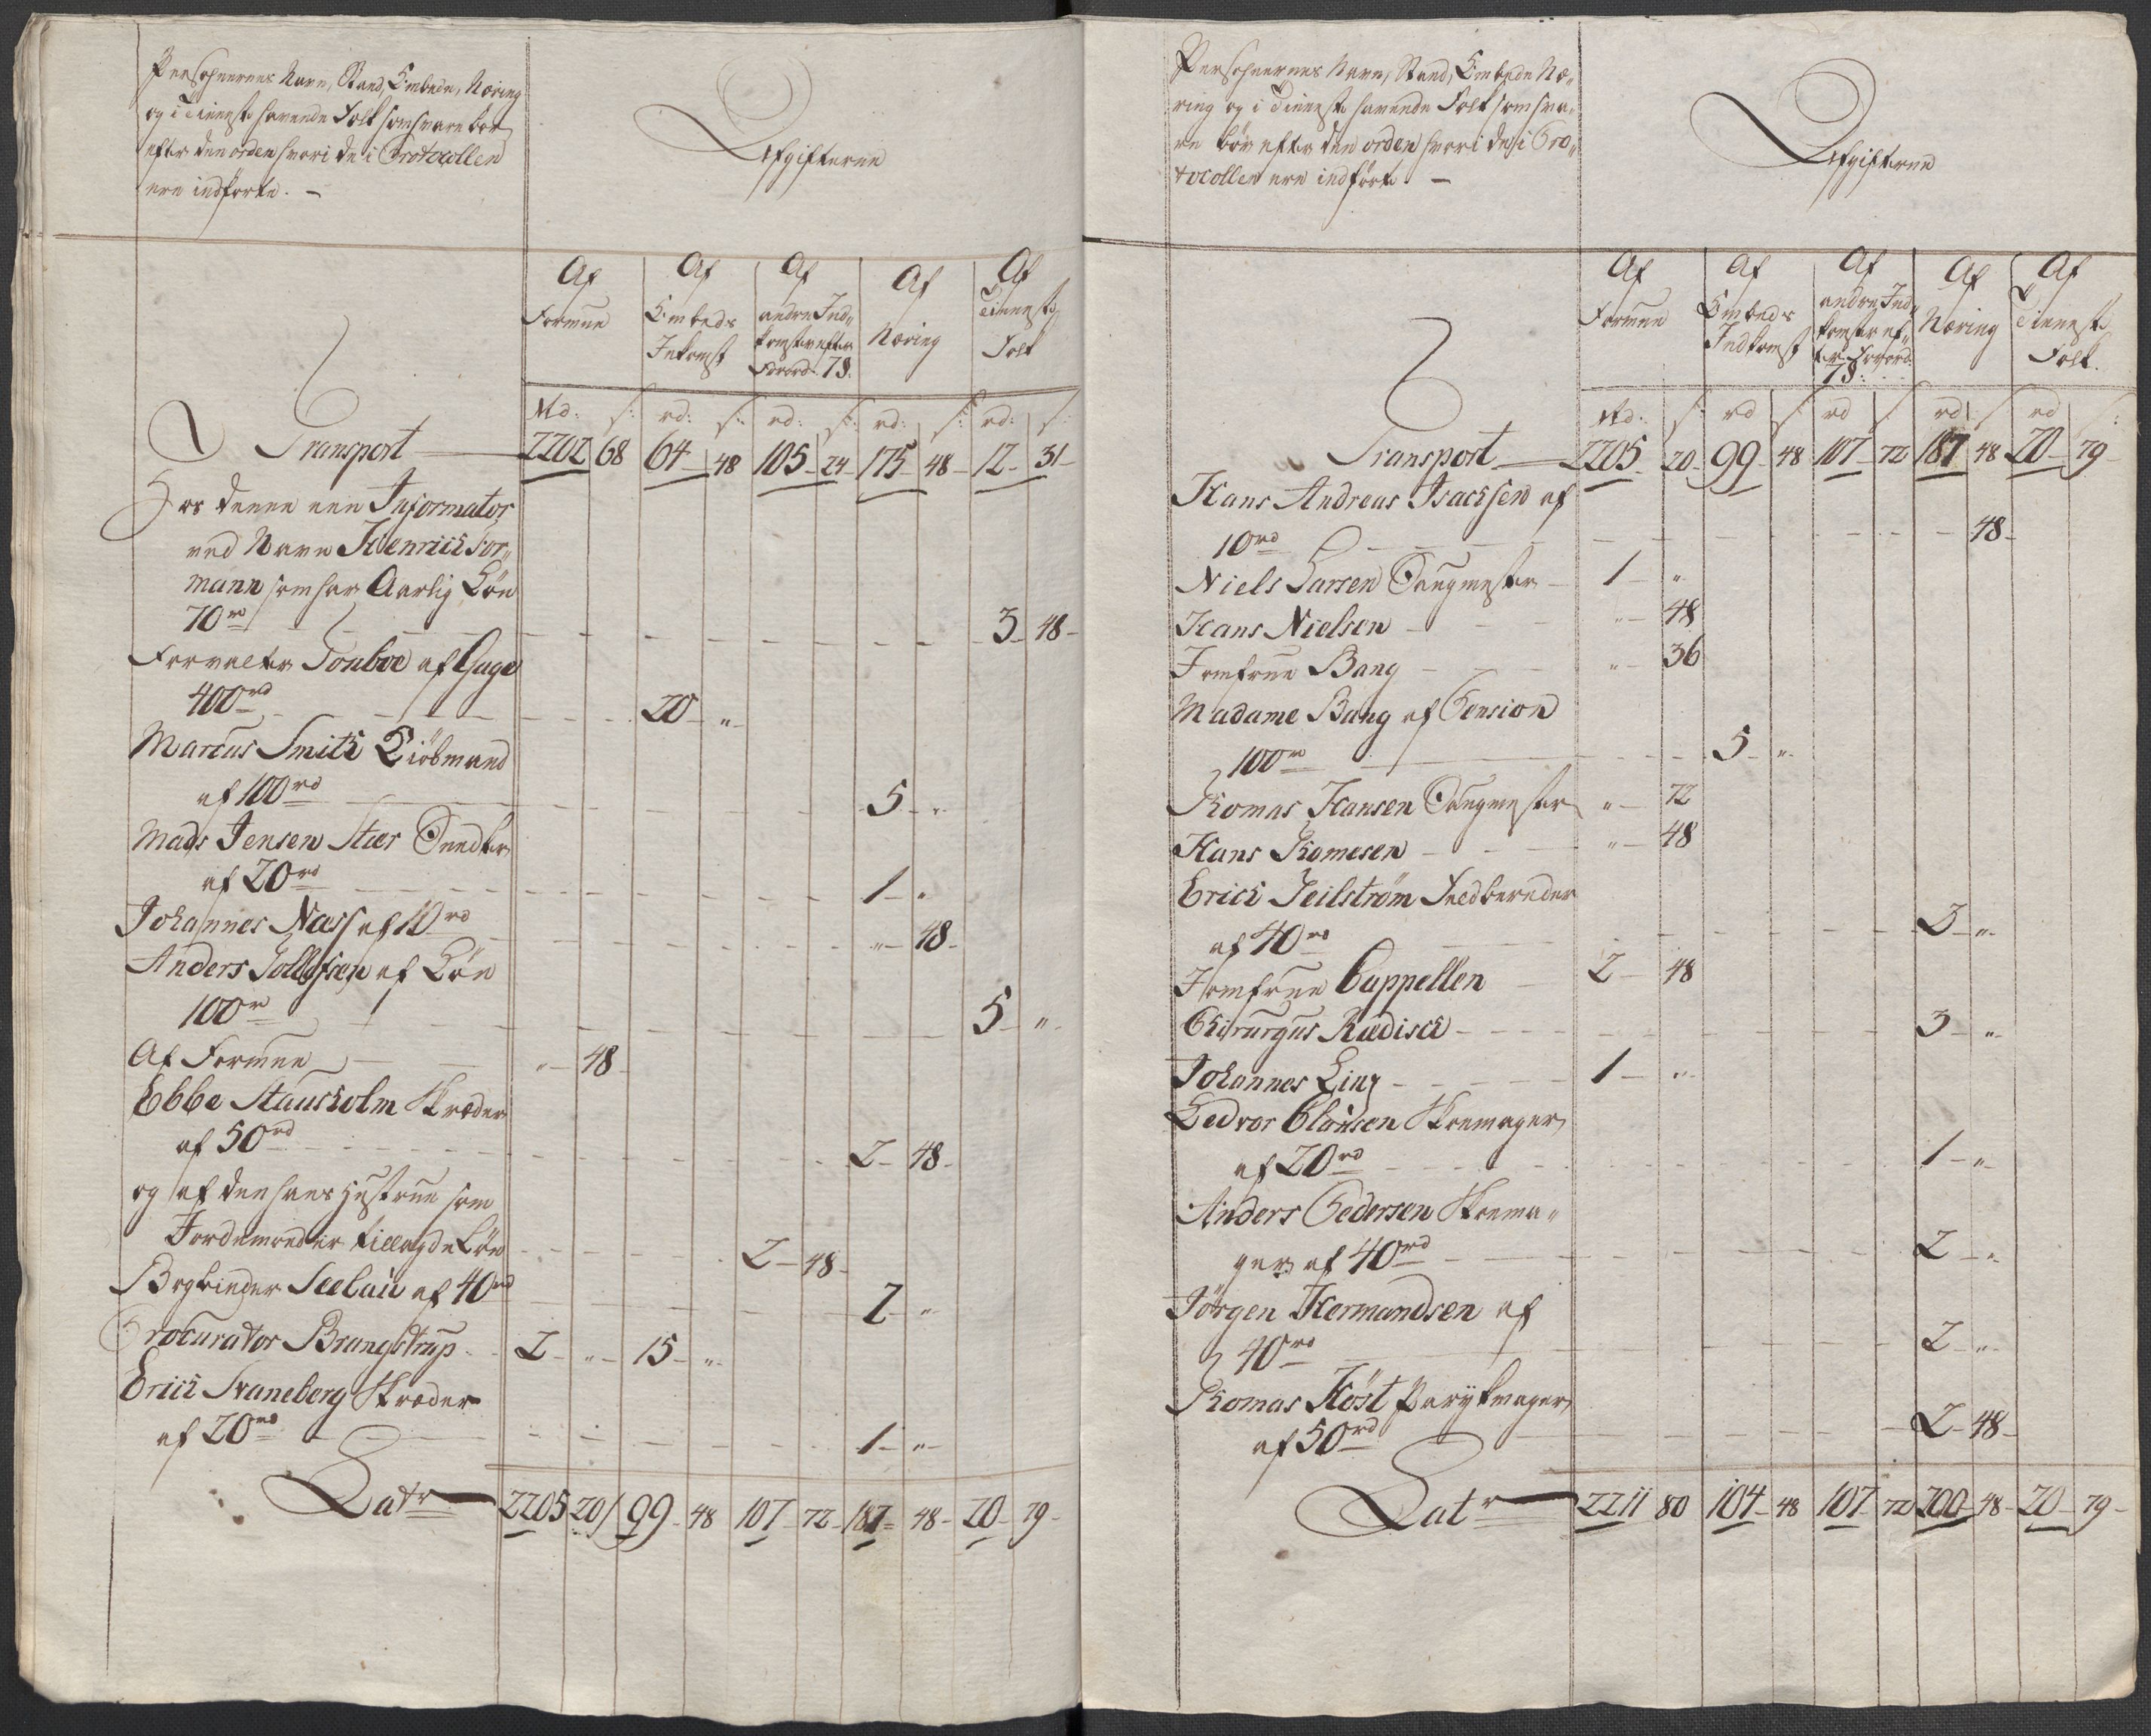 Personernes Navn, Stand, Embede, Næring
og i Tieneste havende Folk som svare bør
efter den orden hvori de i Protocollen
ere indførte. —
Afgifterne
Af Formue
Af Embeds Inkomst
Af andre Indkomster efter Forord. 7 §.
Af Næring
Af Tieneste Folk
Rd: s: rd: s: rd: s: rd: s: rd: s:
Transport 2202 68 64 48 105 24 175 48 12 31
Hos denne een Informator
ved Navn Henrich
mann som har Aarlig Løn
70 rd 3 48
Forvalter af Gage
400 rd 20 "
Marcus Smith Kiøbmand
af 100 rd 5 "
Mads Jensen Snedker
af 20 rd 1 "
Johannes Næss af 10 rd " 48
Anders Tollefsen af Løn
100 rd 5 "
Af Formue " 48
Ebbe Stausholm Skræder
af 50 rd 2 48
og af den hans Hustrue som
Jordemoder tillagde Løn 2 48
Bogbinder Seelau af 40 rd 2 "
Procurator Brangstrup 2 " 15 "
Erich Svaneborg Skræder
af 20 rd 1 "
Latr 2205 20 99 48 107 72 187 48 20 79
Personernes Navn, Stand, Embede Næ„
ring og i Tieneste havende Folk som sva„
re bør efter den orden hvori de i Pro„
tocollen ere indførte —
Afgifterne
Af Formue
Af Embeds Indkomst
Af andre Ind„ komster ef„ ter Forord. 7 §:
Af Næring
Af Tieneste Folk.
Rd: s: rd s: rd s: rd s: rd s:
Transport 2205 20 99 48 107 72 187 48 20 79
Hans Andreas Isachsen af
10 rd " 48
Niels Larsen Saugmester 1 "
Hans Nielsen " 48
Jomfrue Bang " 36
Madame Bang af Pension
100 rd 5 "
Thomas Hansen Saugmester " 72
Hans Thomesen " 48
Erich Feilstrøm Feldbereder
af 40 rd 2 "
Jomfrue Cappellen 2 48
Chirurgus Rædisch 3 "
Johannes Ling 1 "
Pedvor Clausen Skoemager
af 20 rd 1 "
Anders Pedersen Skoema„
ger af 40 rd 2 "
Jørgen Hermandsen af
40 rd 2 "
Thomas Høst Parykmager
af 50 rd 2 48
Latr 2211 80 104 48 107 72 200 48 20 79